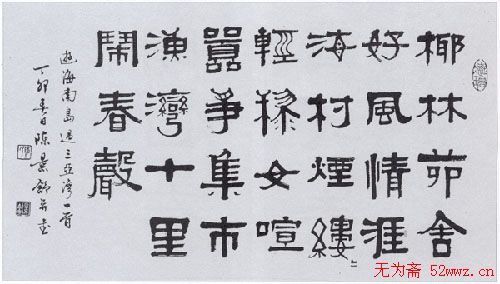 椰林茆舍
好風情涯
海村煙縷々
輕女喧
囂爭集市
漁灣十里
鬧春聲
遊海南島過三亞灣一首
丁卯春日陳景舒并書
无为斋 52wwz.cn